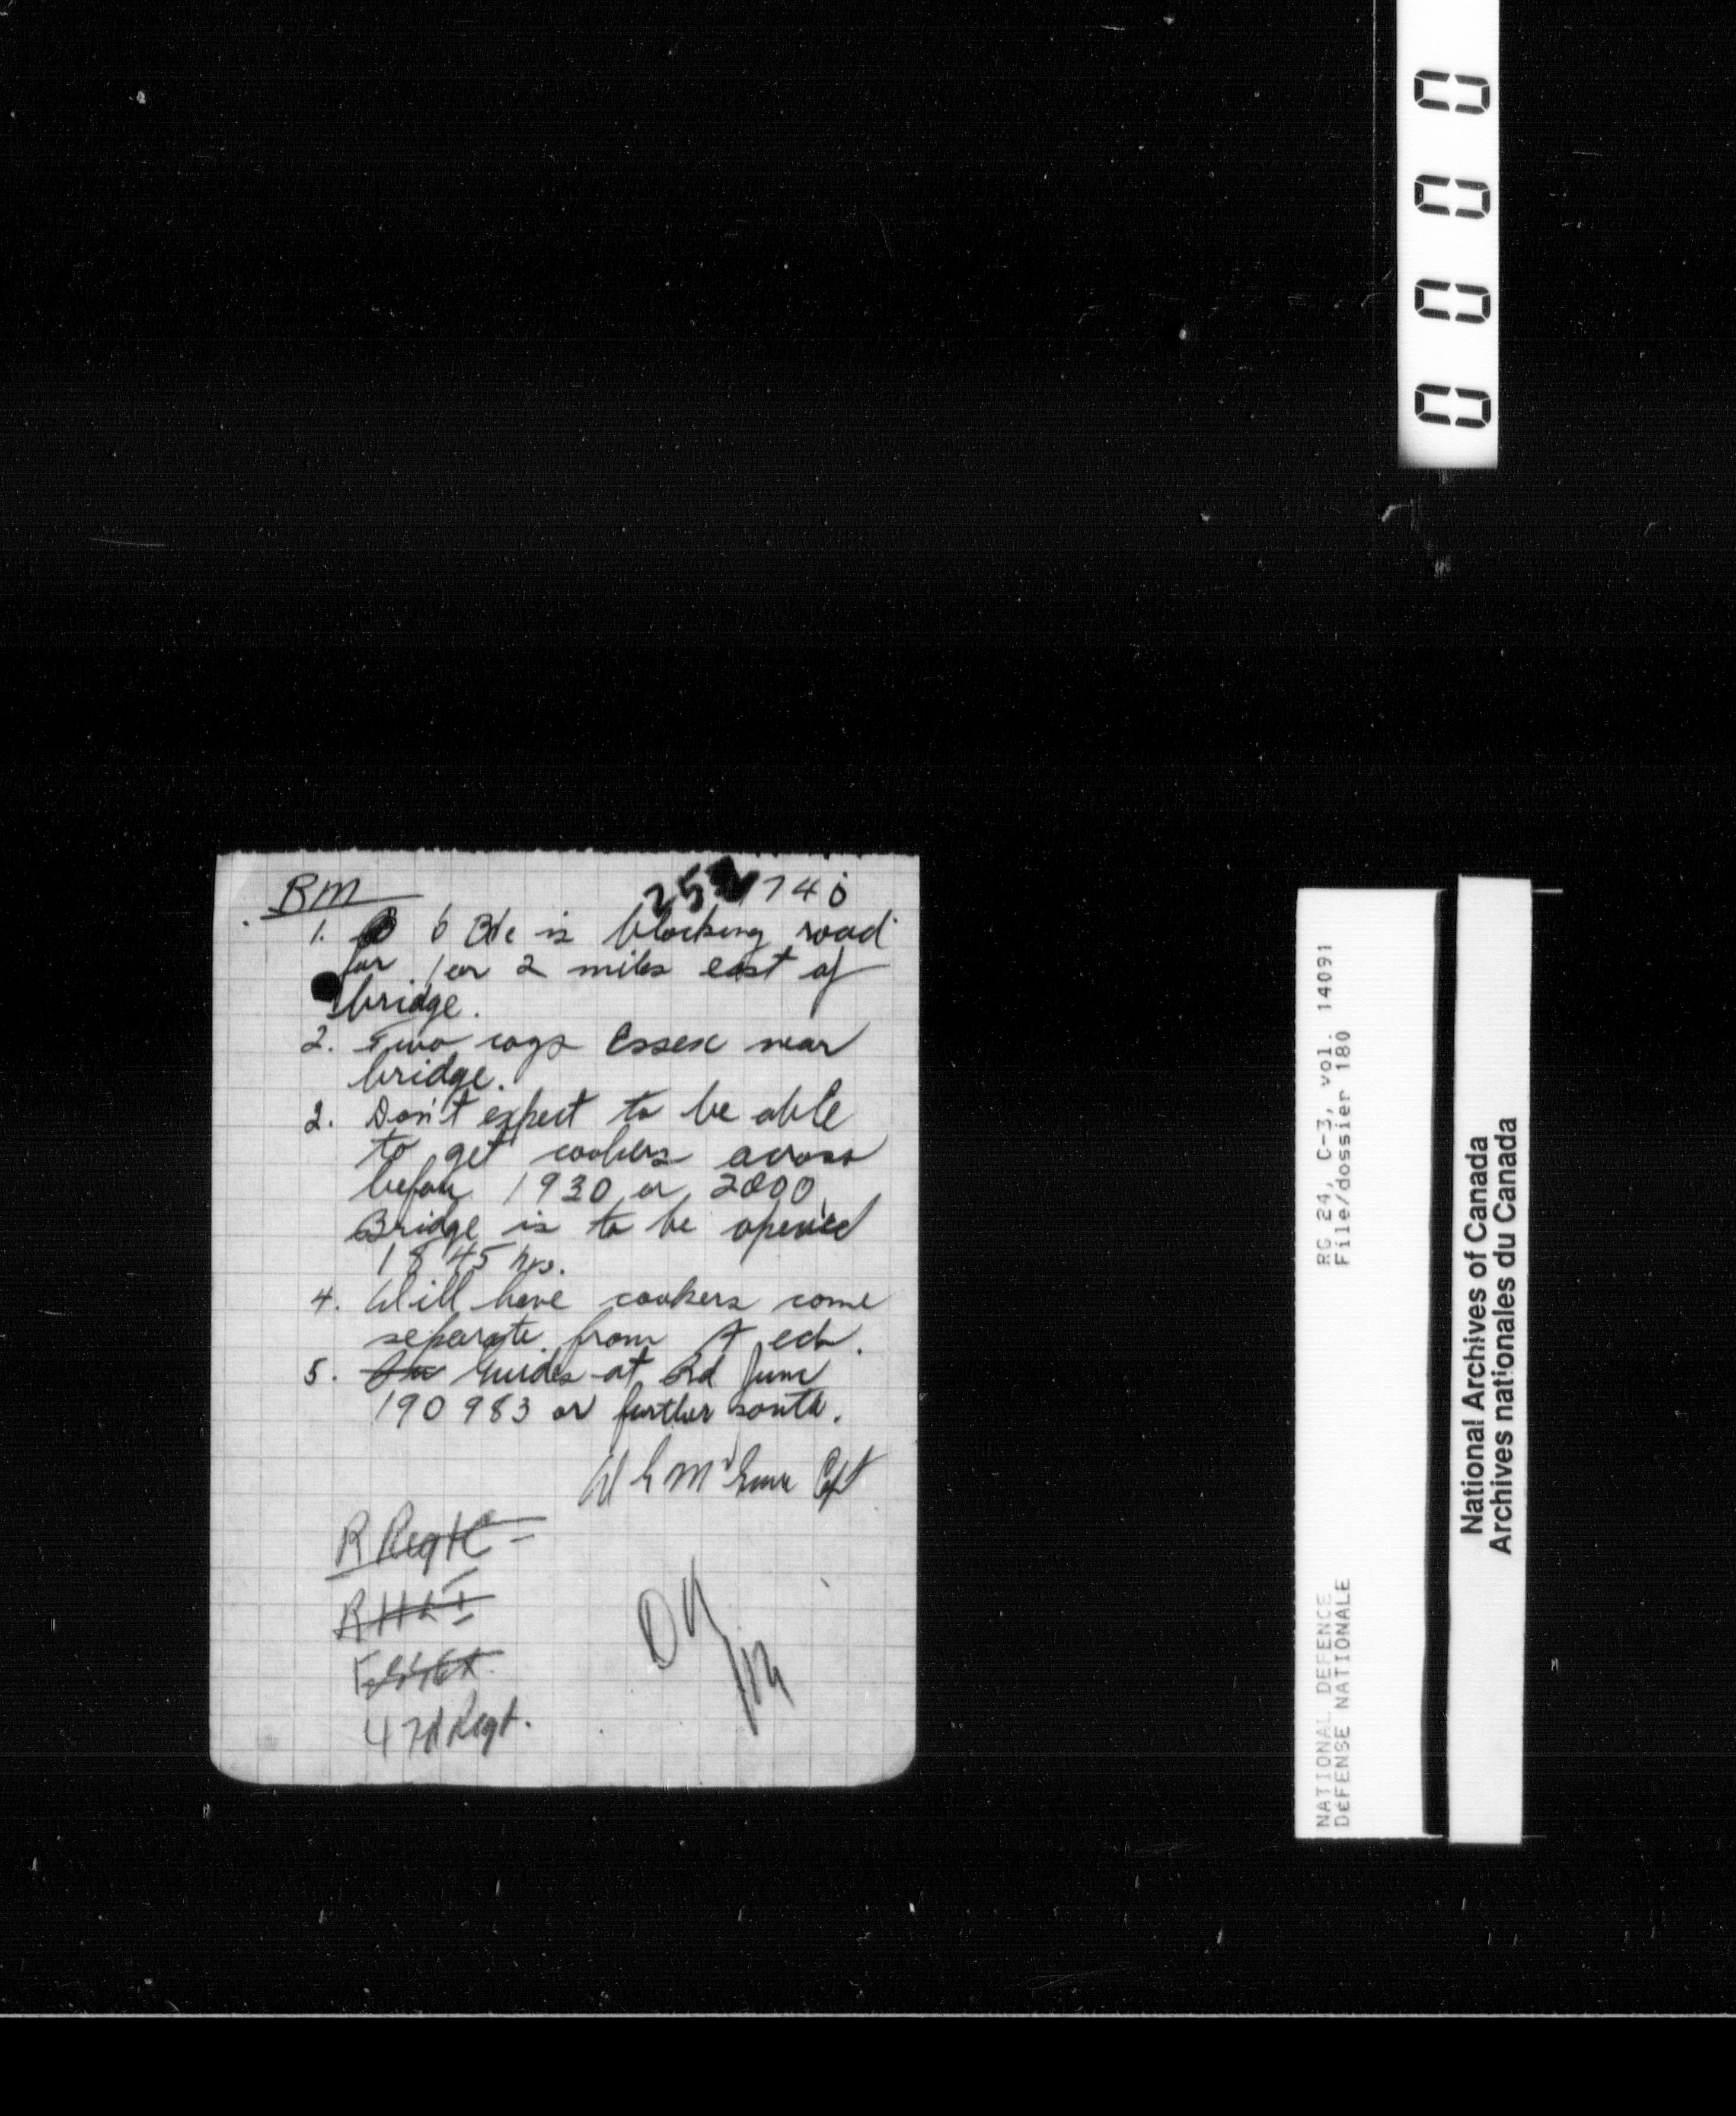 0000
BM
251740
1. 6 Bde is blocking road
for 1 or 2 miles east of
bridge.
2. Two coys Essex near
bridge.
3. Don't expect to be able
to get cookers across
before 1930 or 2000.
Bridge is to be opened
1845 hrs.
4. Will have cookers come
separate from A ech.
5. Guides at Rd Junc
190983 or further south.
Capt
R Regt C
RHLI
Essex
4 Fd Regt.
NATIONAL DEFENCE RG 24, C-3, vol. 14091
DÉFENSE NATIONALE File/dossier 180
National Archives of Canada
Archives nationales du Canada